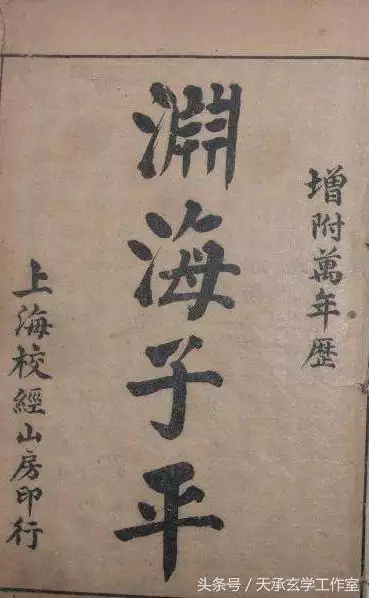 增附萬年歷
淵海子平
上海校經山房印行
头条号／天承玄学工作室